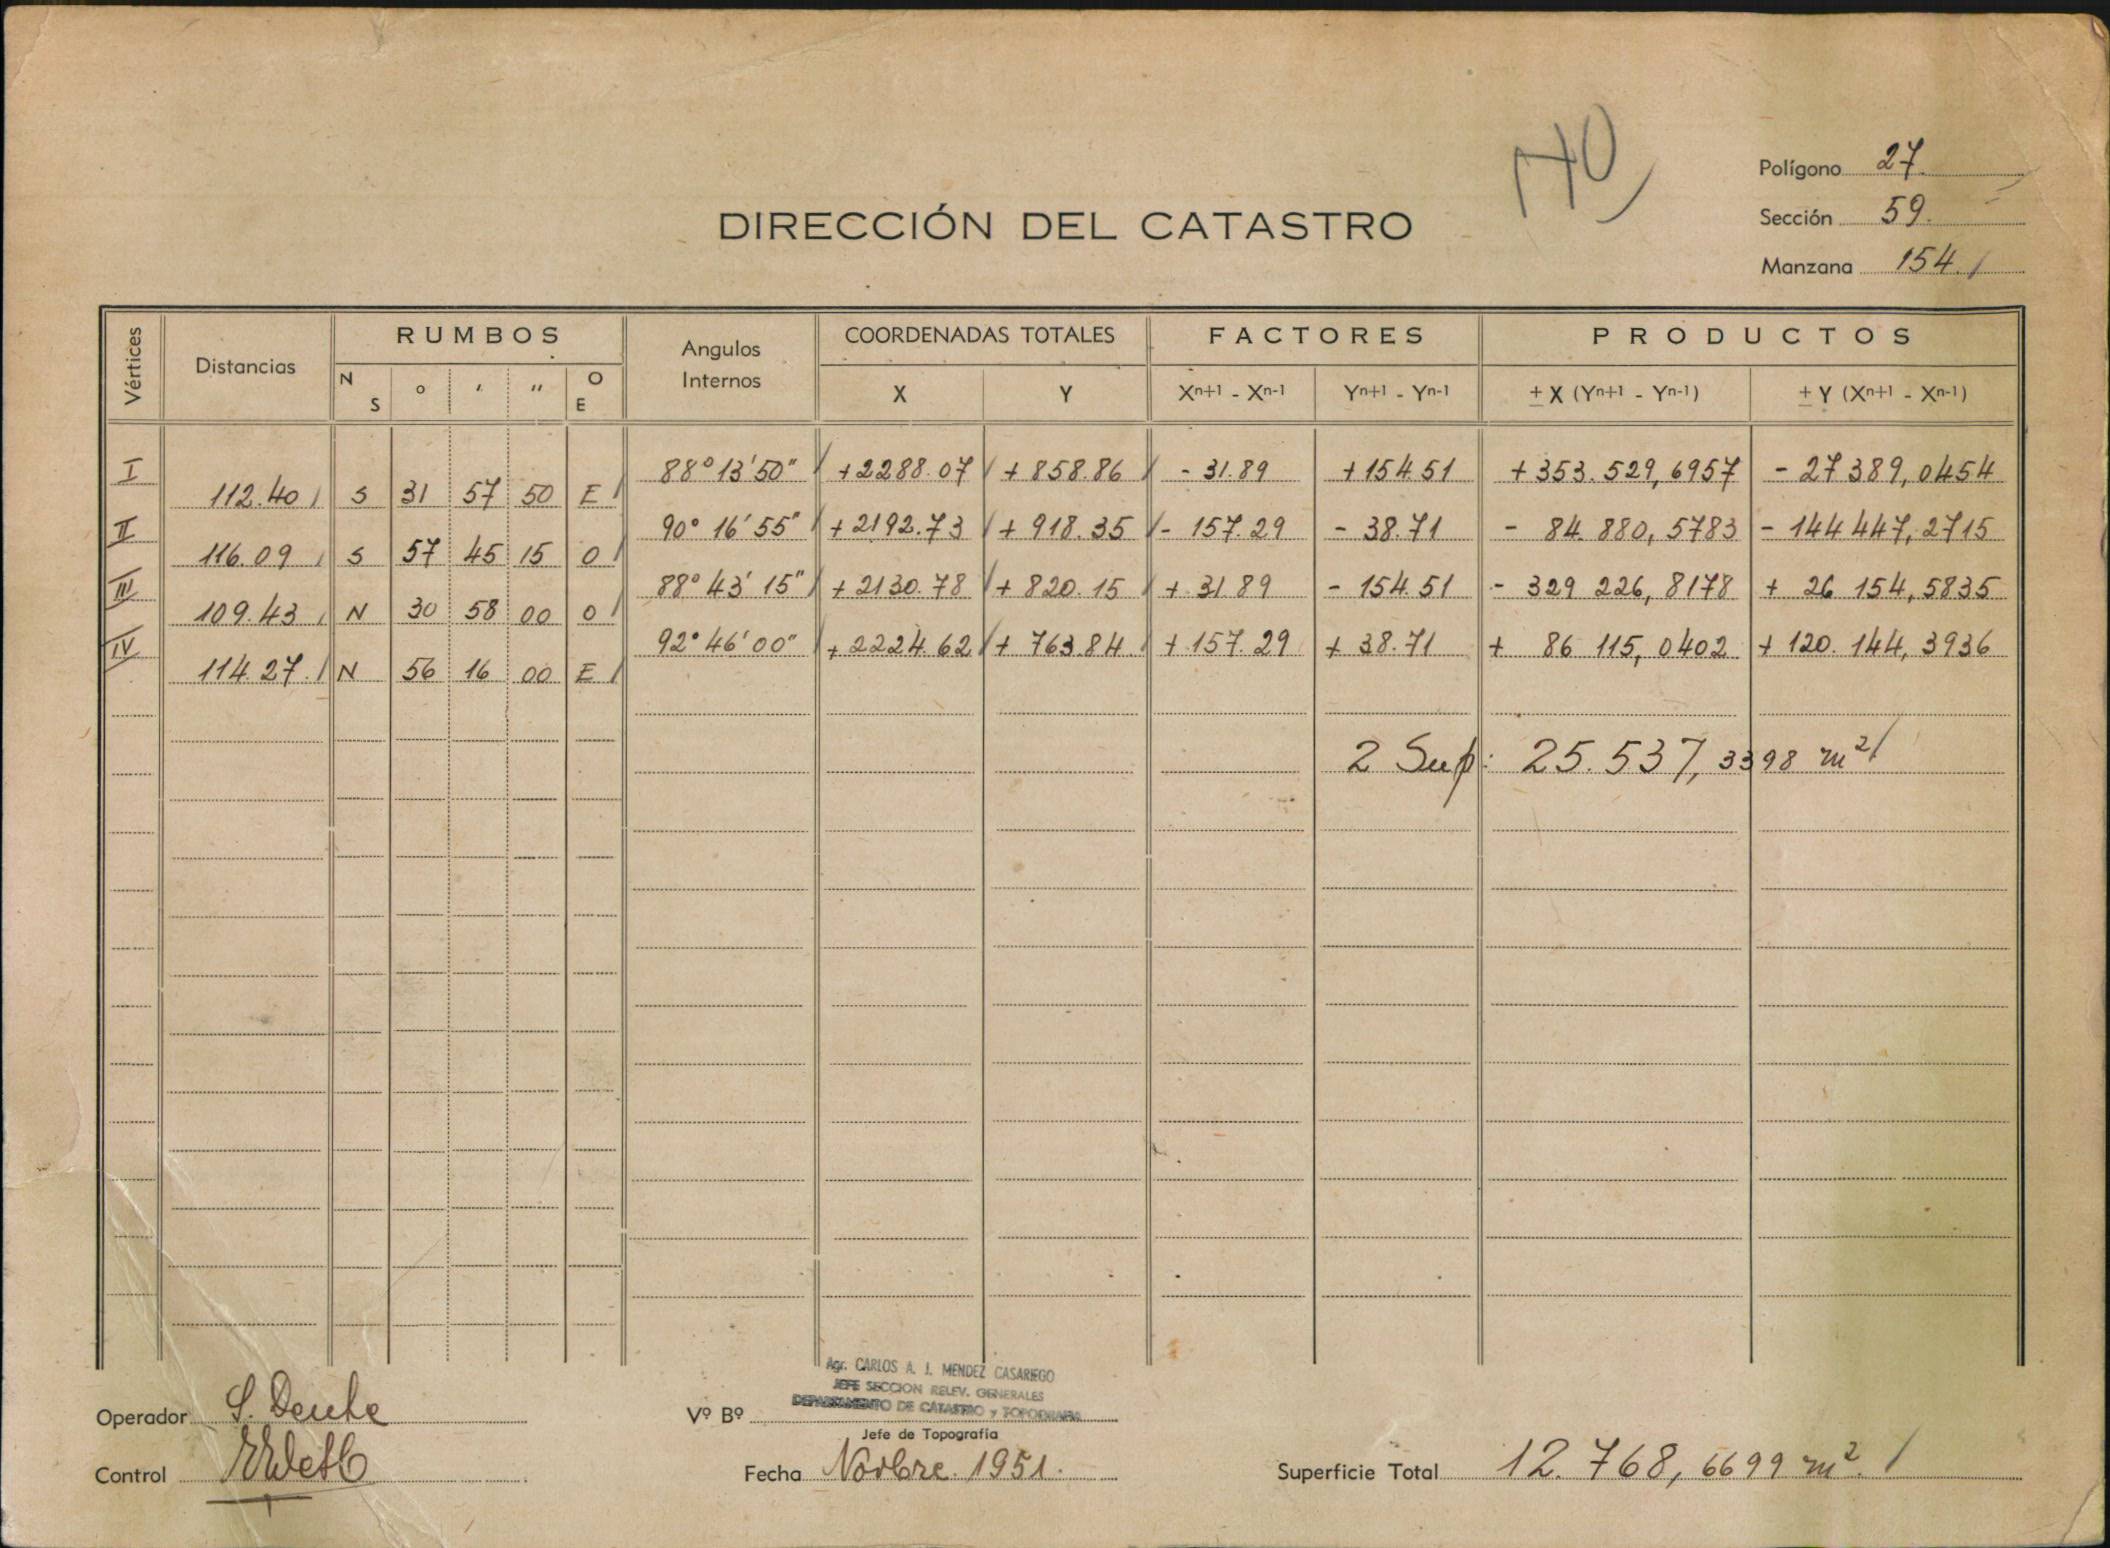 140
Polígono 27.
Sección 59.
Manzana 154.
DIRECCIÓN DEL CATASTRO
Vértices Distancias RUMBOS Angulos Internos COORDENADAS TOTALES FACTORES PRODUCTOS
N S ° ' " O E X Y Xn+1 - Xn-1 Yn+1 - Yn-1 ± X (Yn+1 - Yn-1) ± Y (Xn+1 - Xn-1)
I 88° 13' 50" +2288.07 + 858.86 - 31.89 +154.51 +353.529,6957 - 27 389,0454
112.40 S 31 57 50 E
II 90° 16' 55" +2192.73 + 918.35 - 157.29 - 38.71 - 84.880,5783 - 144 447,2715
116.09 S 57 45 15 O
III 88° 43' 15" +2130.78 + 820.15 + 31.89 - 154.51 - 329 226,8178 + 26 154,5835
109.43 N 30 58 00 O
IV 92° 46' 00" + 2224.62 + 763.84 + 157.29 + 38.71 + 86 115,0402 + 120.144,3936
114.27. N 56 16 00 E
2 Sup: 25.537,3398 m²
Agr. CARLOS A. J. MENDEZ CASARIEGO
JEFE SECCION RELEV. GENERALES
DEPARTAMENTO DE CATASTRO y TOPOGRAFIA
Operador Vº Bº
Jefe de Topografía
Control Fecha Novbre. 1951. Superficie Total 12.768,6699 m².